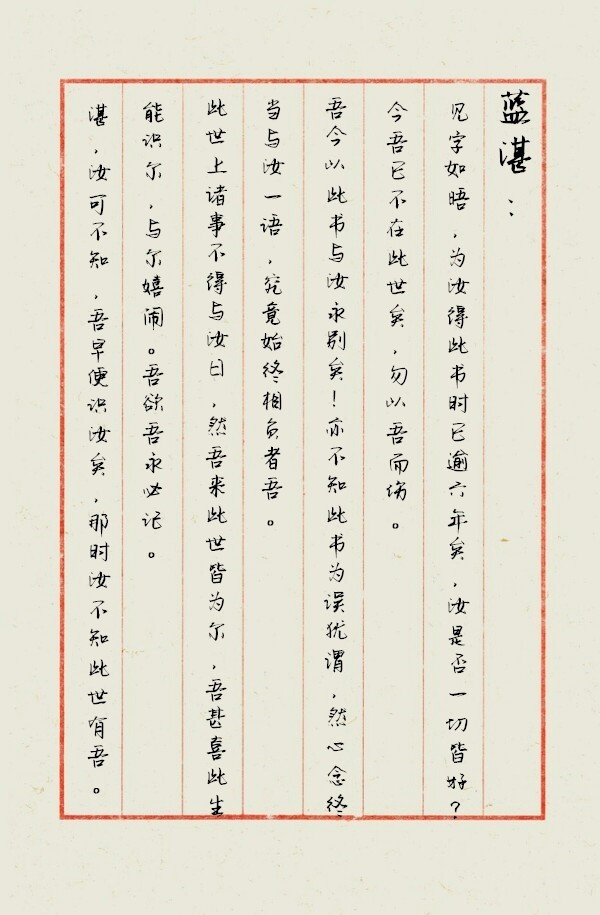 蓝湛：
见字如晤，为汝得此书时已逾六年矣，汝是否一切皆好？
今吾已不在此世矣，勿以吾而伤。
吾今以此书与汝永别矣！亦不知此书为误犹谓，然心念终
当与汝一语，究竟始终相负者吾。
此世上诸事不得与汝曰，然吾来此世皆为尔，吾甚喜此生
能识尔，与尔嬉闹。吾欲吾永必记。
湛，汝可不知，吾早便识汝矣，那时汝不知此世有吾。